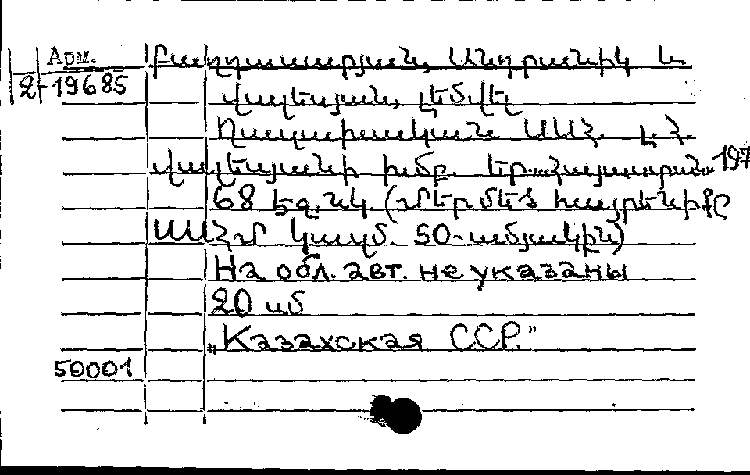 Арм.
2-19685
Բաղդասարյան, Անդրանիկ և
Վալեսյան, Լեմվել
Ղազախական ՍՍՀ. Լ. Հ.
Վալեսյանի խմբ. Եր., „Հայաստան" 197
68 էջ. նկ. (Մեր մեծ հայրենիքը
ՍՍՀՄ կազմ. 50-ամյակին)
На обл. авт. не указаны
20 ամ
„Казахская ССР."
50001